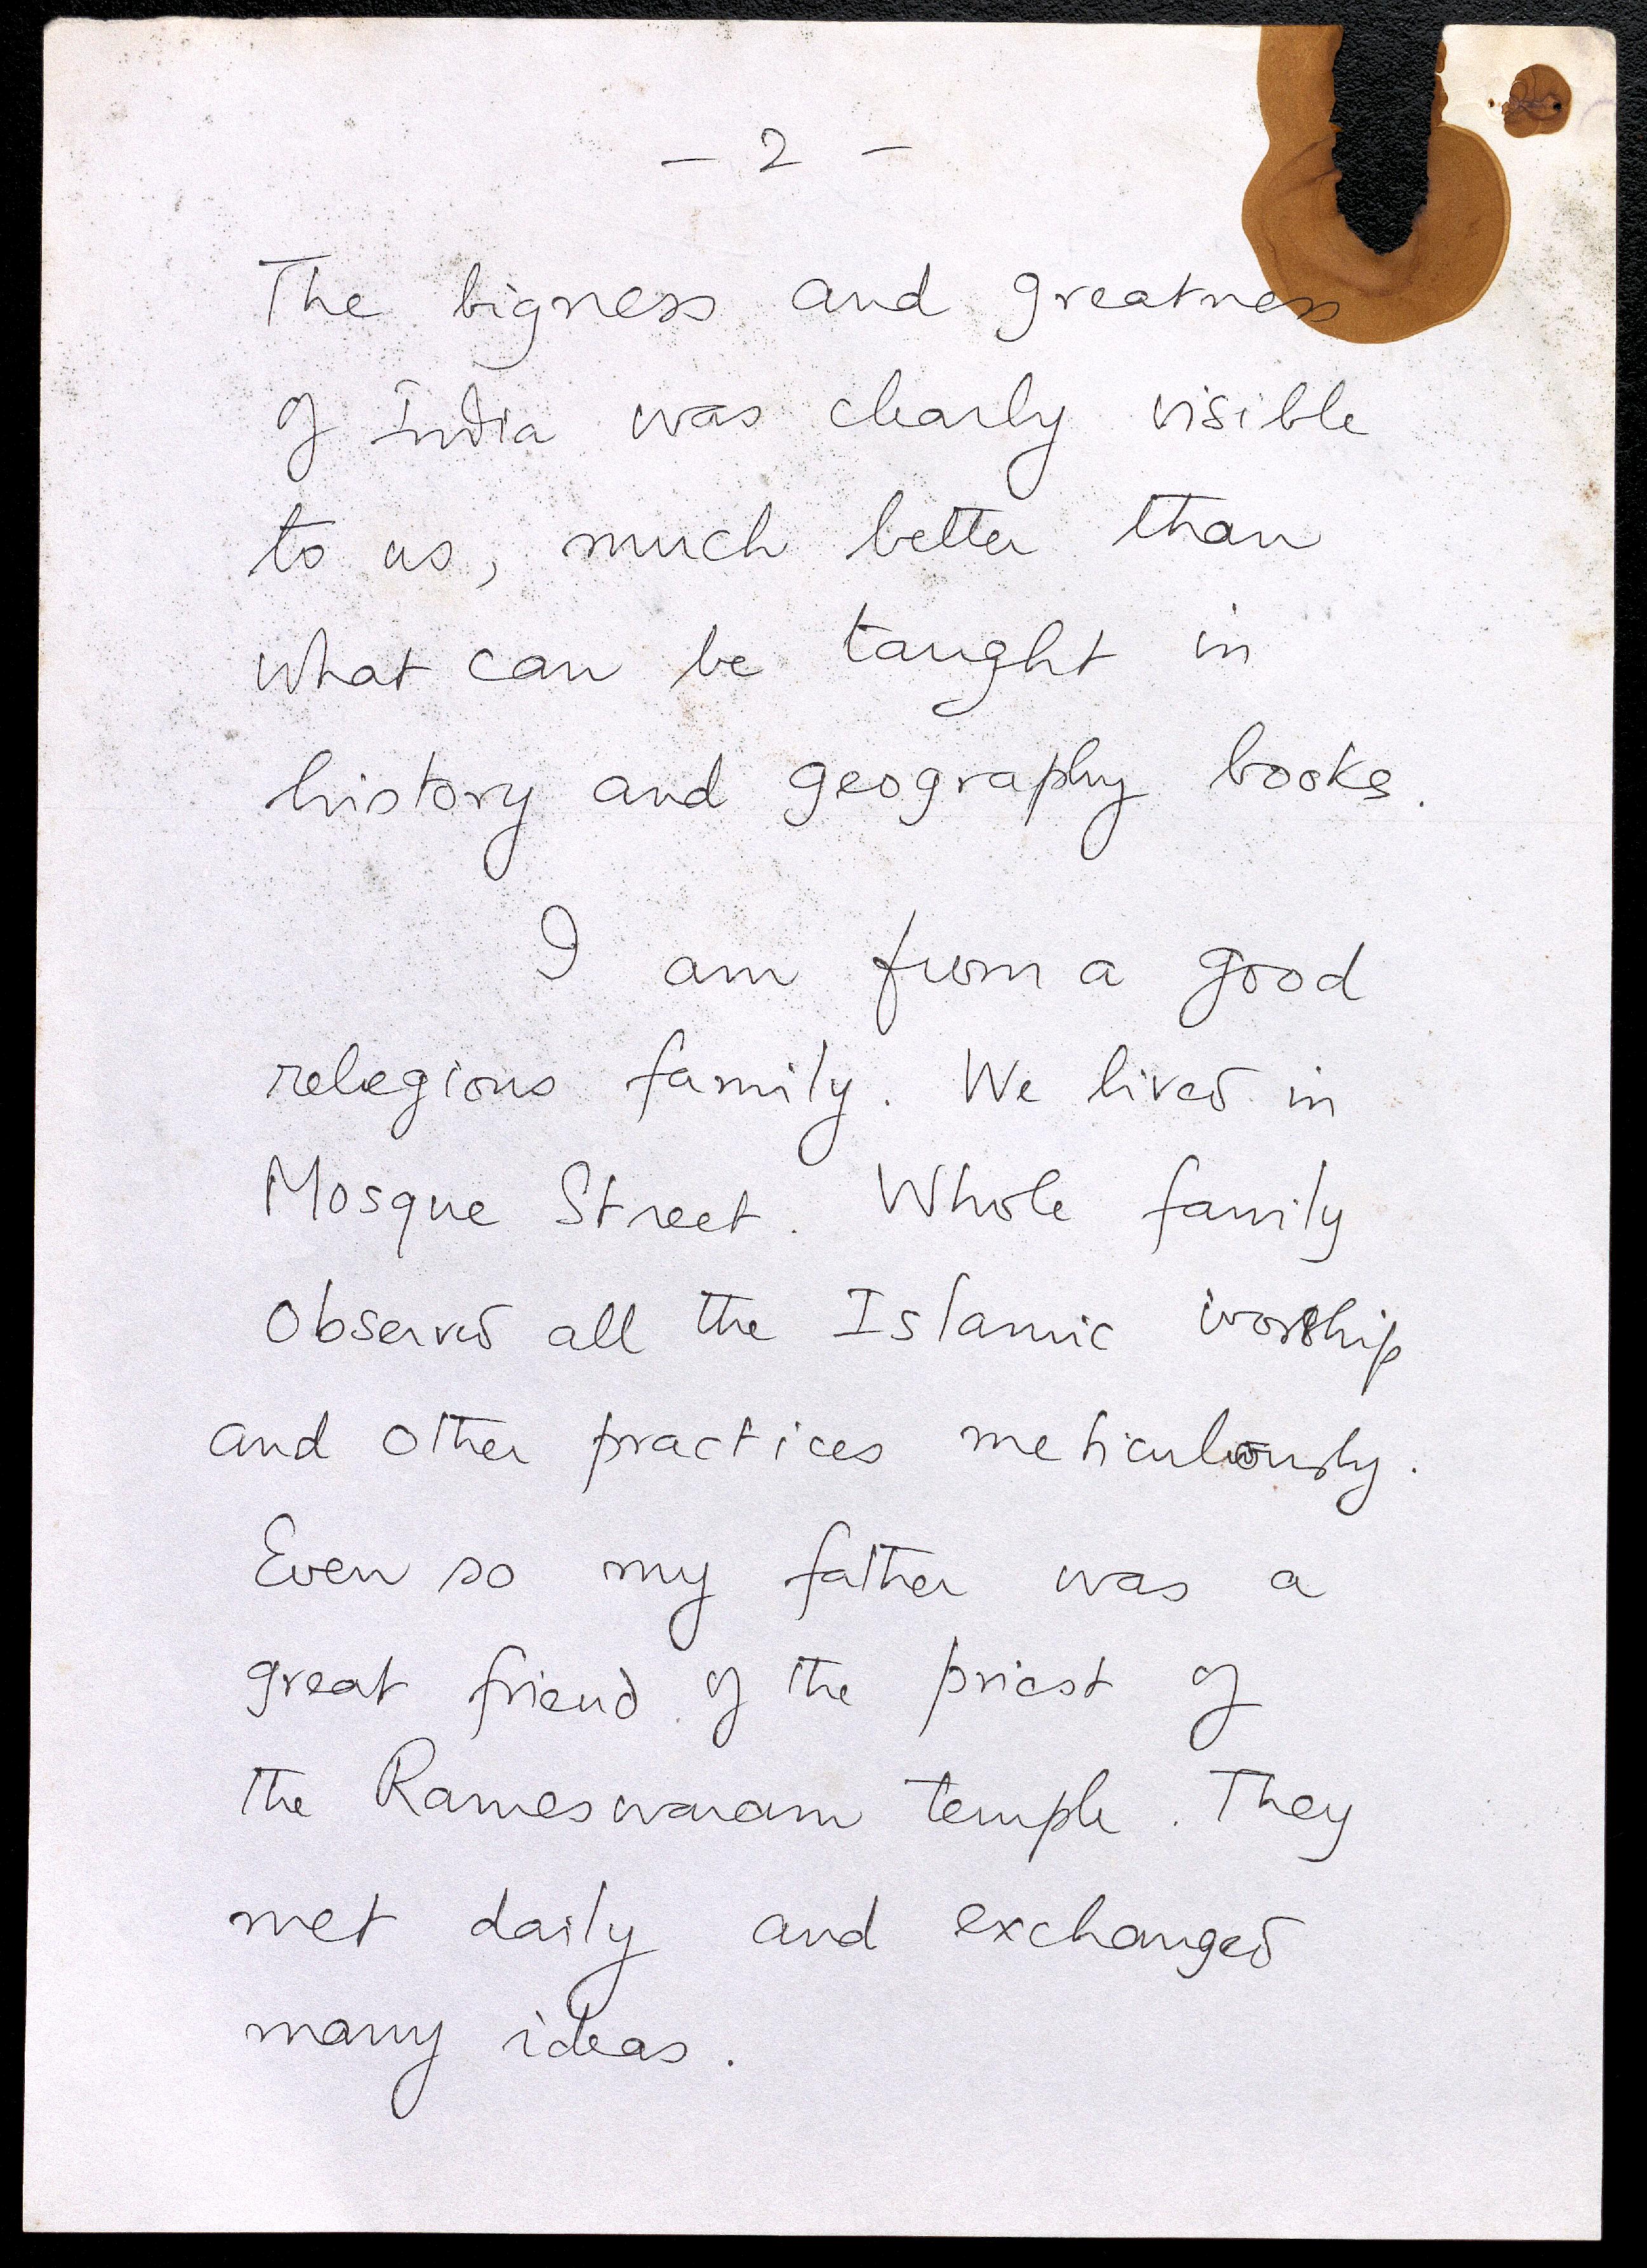 - 2 -
The bigness and greatness
of India was clearly visible
to us, much better than
what can be taught in
history and geography books.
I am from a good
relegious family. We lived in
Mosque Street. Whole family
observed all the Islamic worship
and other practices meticulously.
Even so my father was a
great friend of the priest of
the Rameswaram temple. They
met daily and exchanged
many ideas.